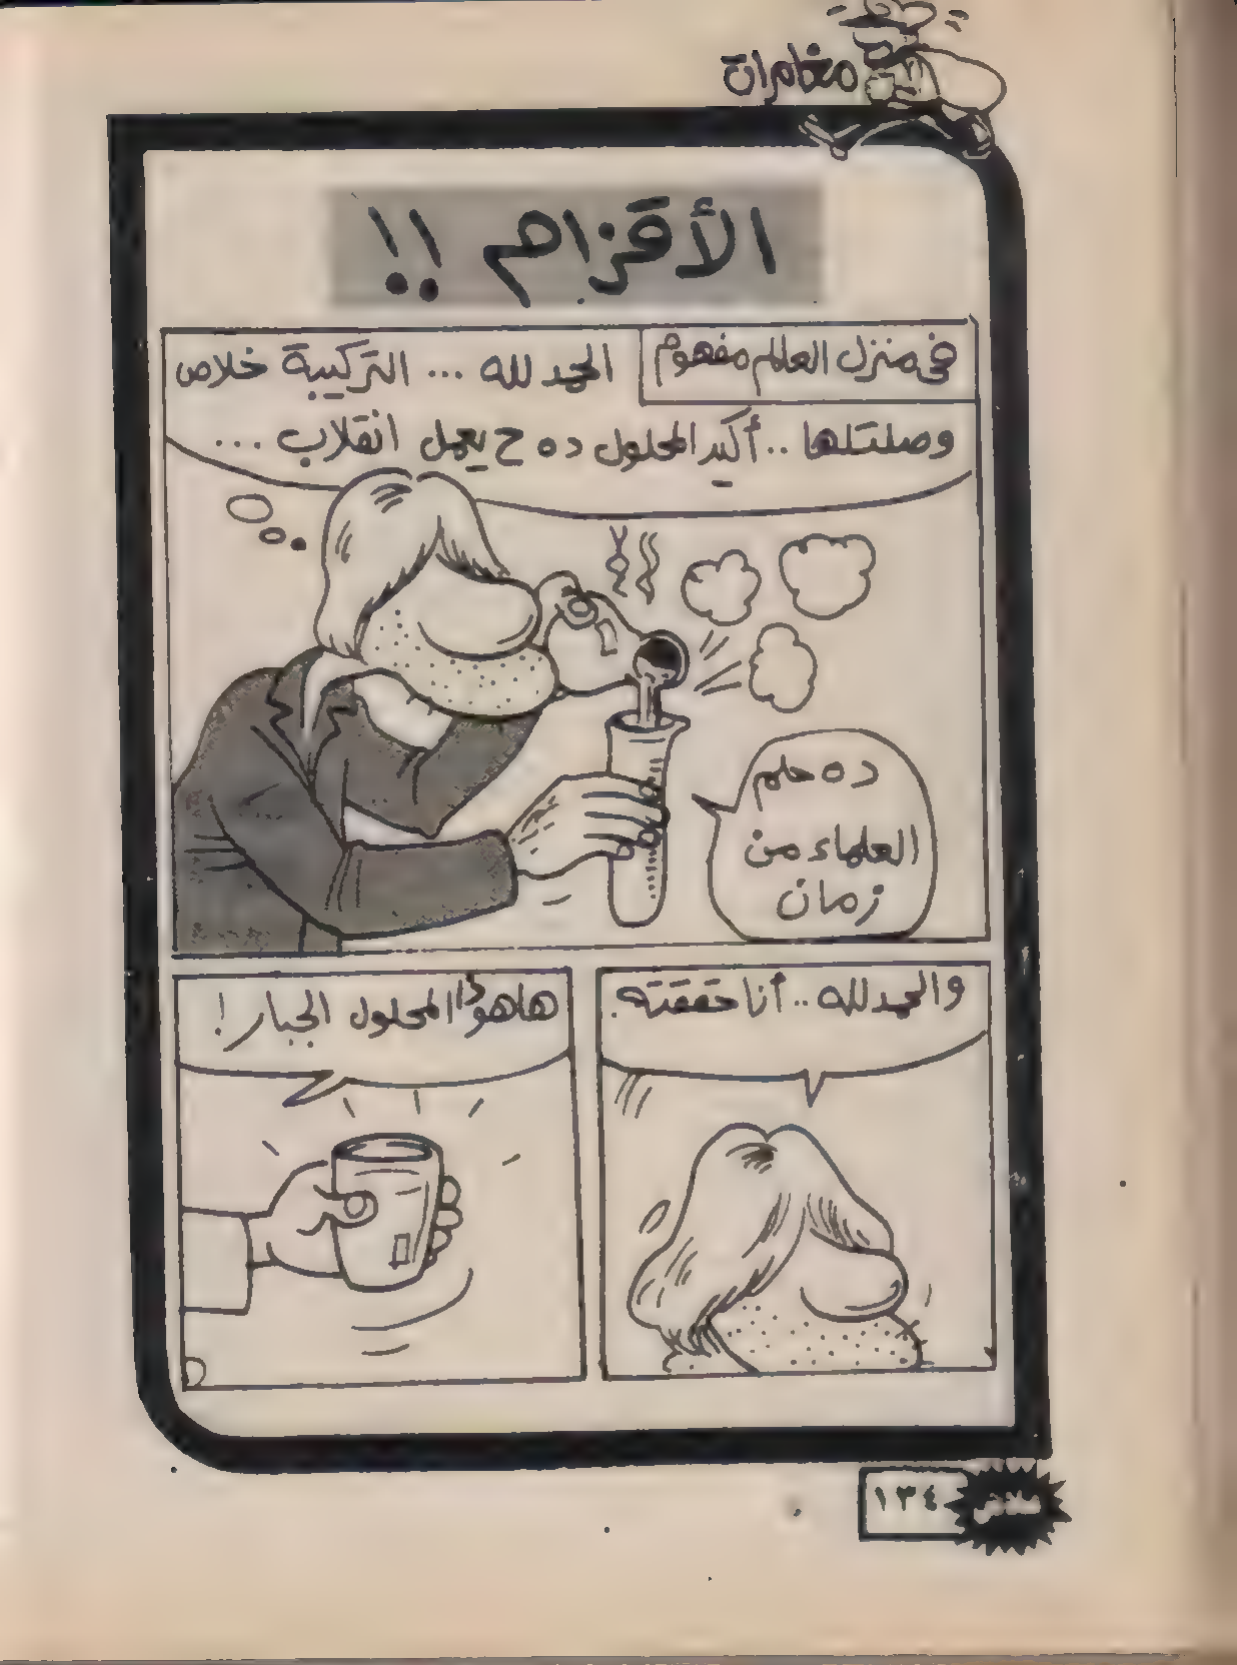 مغامرات
الأقزام !!
فى منزل العالم مفهوم
الحمد لله ... التركيبة خلاص
وصلتلها .. أكيد المحلول ده ح يعمل انقلاب ...
ده حلم
العلماء من
زمان
والحمد لله .. أنا حققته.
هاهوذا المحلول الجبار !
١٣٤